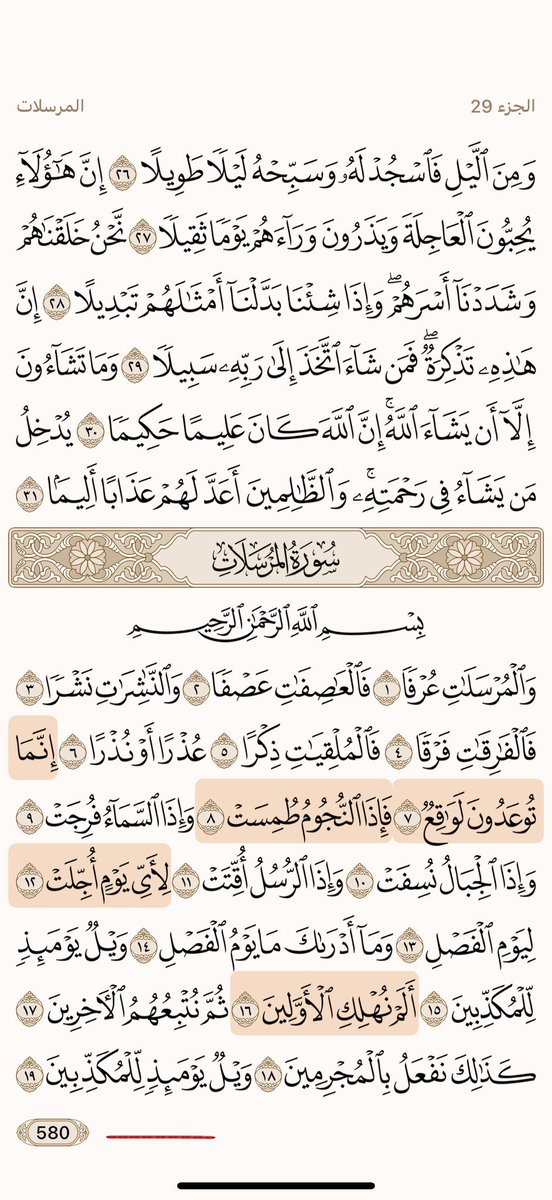 الجزء 29
المرسلات
وَمِنَ ٱلَّيْلِ فَٱسْجُدْ لَهُۥ وَسَبِّحْهُ لَيْلًا طَوِيلًا ٢٦ إِنَّ هَٰٓؤُلَآءِ
يُحِبُّونَ ٱلْعَاجِلَةَ وَيَذَرُونَ وَرَآءَهُمْ يَوْمًا ثَقِيلًا ٢٧ نَّحْنُ خَلَقْنَٰهُمْ
وَشَدَدْنَآ أَسْرَهُمْ ۖ وَإِذَا شِئْنَا بَدَّلْنَآ أَمْثَٰلَهُمْ تَبْدِيلًا ٢٨ إِنَّ
هَٰذِهِۦ تَذْكِرَةٌ ۖ فَمَن شَآءَ ٱتَّخَذَ إِلَىٰ رَبِّهِۦ سَبِيلًا ٢٩ وَمَا تَشَآءُونَ
إِلَّآ أَن يَشَآءَ ٱللَّهُ ۚ إِنَّ ٱللَّهَ كَانَ عَلِيمًا حَكِيمًا ٣٠ يُدْخِلُ
مَن يَشَآءُ فِى رَحْمَتِهِۦ ۚ وَٱلظَّٰلِمِينَ أَعَدَّ لَهُمْ عَذَابًا أَلِيمًۢا ٣١
سُورَةُ المُرْسَلَاتِ
بِسْمِ ٱللَّهِ ٱلرَّحْمَٰنِ ٱلرَّحِيمِ
وَٱلْمُرْسَلَٰتِ عُرْفًا ١ فَٱلْعَٰصِفَٰتِ عَصْفًا ٢ وَٱلنَّٰشِرَٰتِ نَشْرًا ٣
فَٱلْفَٰرِقَٰتِ فَرْقًا ٤ فَٱلْمُلْقِيَٰتِ ذِكْرًا ٥ عُذْرًا أَوْ نُذْرًا ٦ إِنَّمَا
تُوعَدُونَ لَوَٰقِعٌ ٧ فَإِذَا ٱلنُّجُومُ طُمِسَتْ ٨ وَإِذَا ٱلسَّمَآءُ فُرِجَتْ ٩
وَإِذَا ٱلْجِبَالُ نُسِفَتْ ١٠ وَإِذَا ٱلرُّسُلُ أُقِّتَتْ ١١ لِأَىِّ يَوْمٍ أُجِّلَتْ ١٢
لِيَوْمِ ٱلْفَصْلِ ١٣ وَمَآ أَدْرَىٰكَ مَا يَوْمُ ٱلْفَصْلِ ١٤ وَيْلٌ يَوْمَئِذٍ
لِّلْمُكَذِّبِينَ ١٥ أَلَمْ نُهْلِكِ ٱلْأَوَّلِينَ ١٦ ثُمَّ نُتْبِعُهُمُ ٱلْءَاخِرِينَ ١٧
كَذَٰلِكَ نَفْعَلُ بِٱلْمُجْرِمِينَ ١٨ وَيْلٌ يَوْمَئِذٍ لِّلْمُكَذِّبِينَ ١٩
580